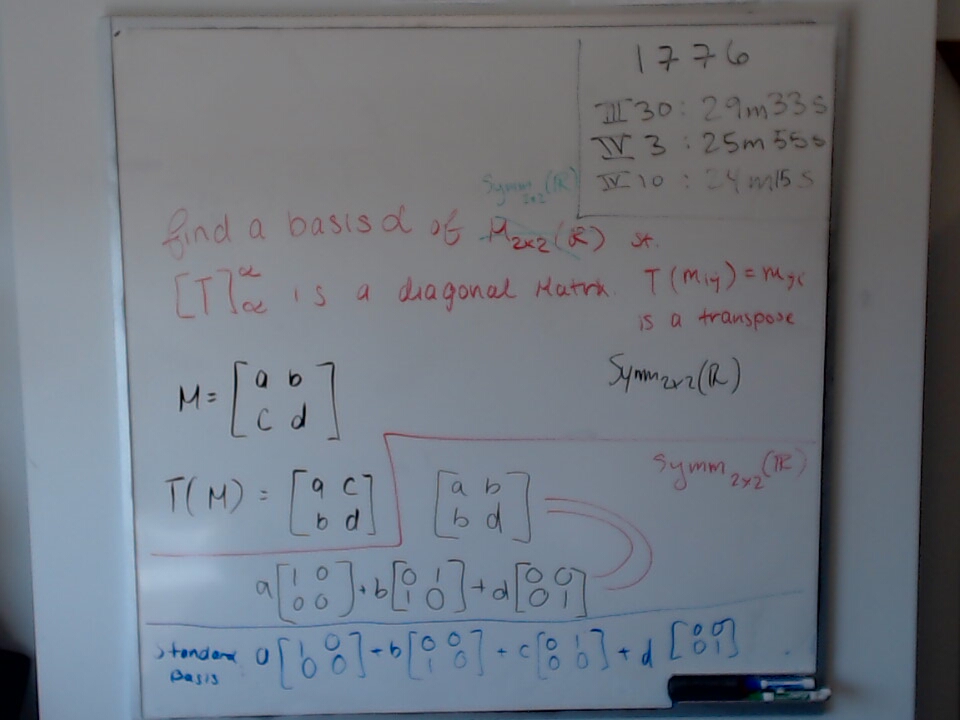 1776
III 30 : 29m33s
IV 3 : 25m55s
IV 10 : 24m15s
Symm2x2(ℝ)
find a basis α of M2x2(ℝ) st.
[T]αα is a diagonal Matrix. T(mij) = mji
is a transpose
M = [a b
c d]
Symm2x2(ℝ)
Symm2x2(ℝ)
T(M) = [a c
b d]
[a b
b d]
a[1 0
0 0] + b[0 1
1 0] + d[0 0
0 1]
standard
Basis
a[1 0
0 0] + b[0 0
1 0] + c[0 1
0 0] + d[0 0
0 1]